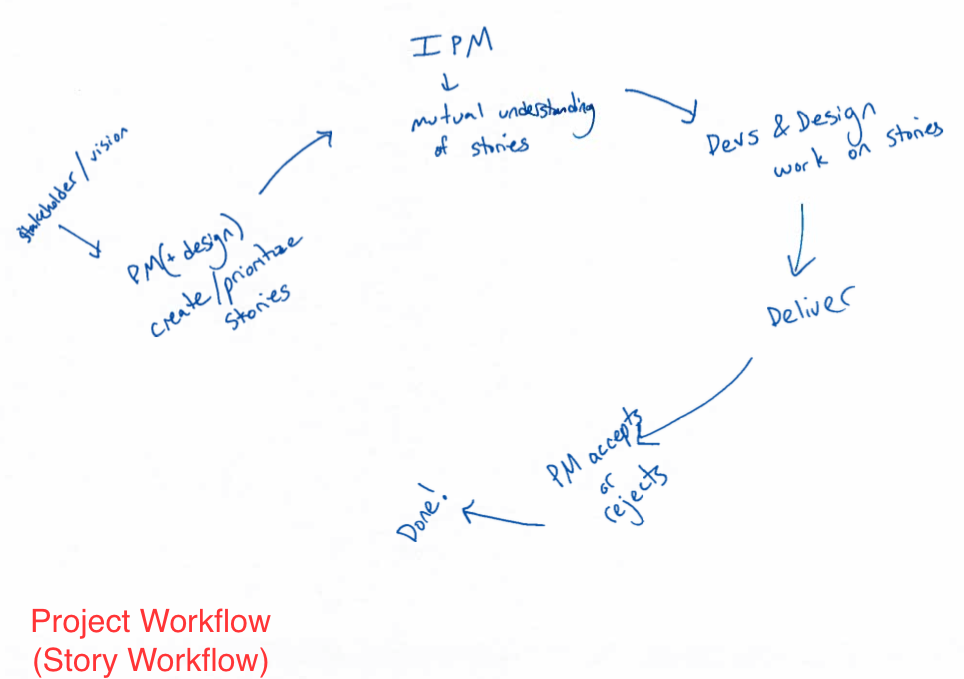 stakeholder/vision
PM(+ design)
create/prioritize
stories
IPM
mutual understanding
of stories
Devs & Design
work on stories
Deliver
PM accepts
or
rejects
Done!
Project Workflow
(Story Workflow)